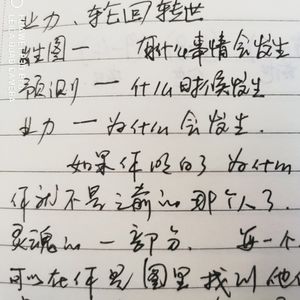 业力、轮回转世
星图一 有什么事情会发生
预测一 什么时候发生
业力一 为什么会发生.
如果你明白了为什么
你就不是之前的那个人了.
灵魂的一部分. 每一个
可以在你星图里找到他们